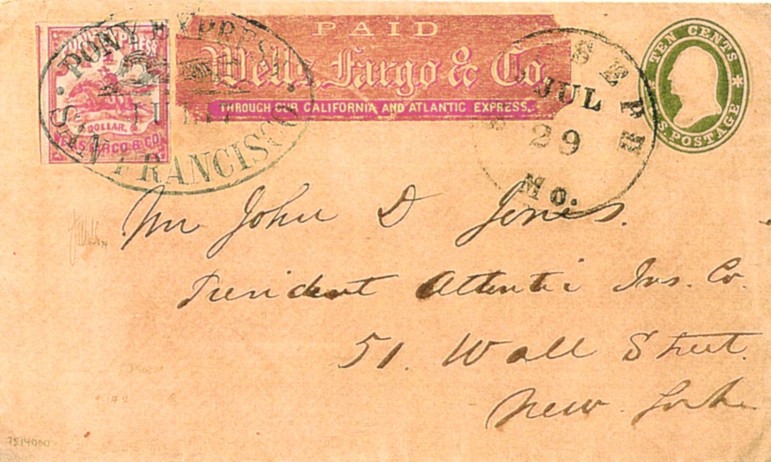 PAID
Wells, Fargo & Co.
THROUGH OUR CALIFORNIA AND ATLANTIC EXPRESS.
PONY EXPRESS
DOLLAR.
FARGO & CO
PONY EXPRESS
11
SAN FRANCISCO
SEPH
JUL
29
Mo.
TEN CENTS
U.S. POSTAGE
Mr John D Jones.
President Atlantic Ins. Co.
51. Wall Street.
New York